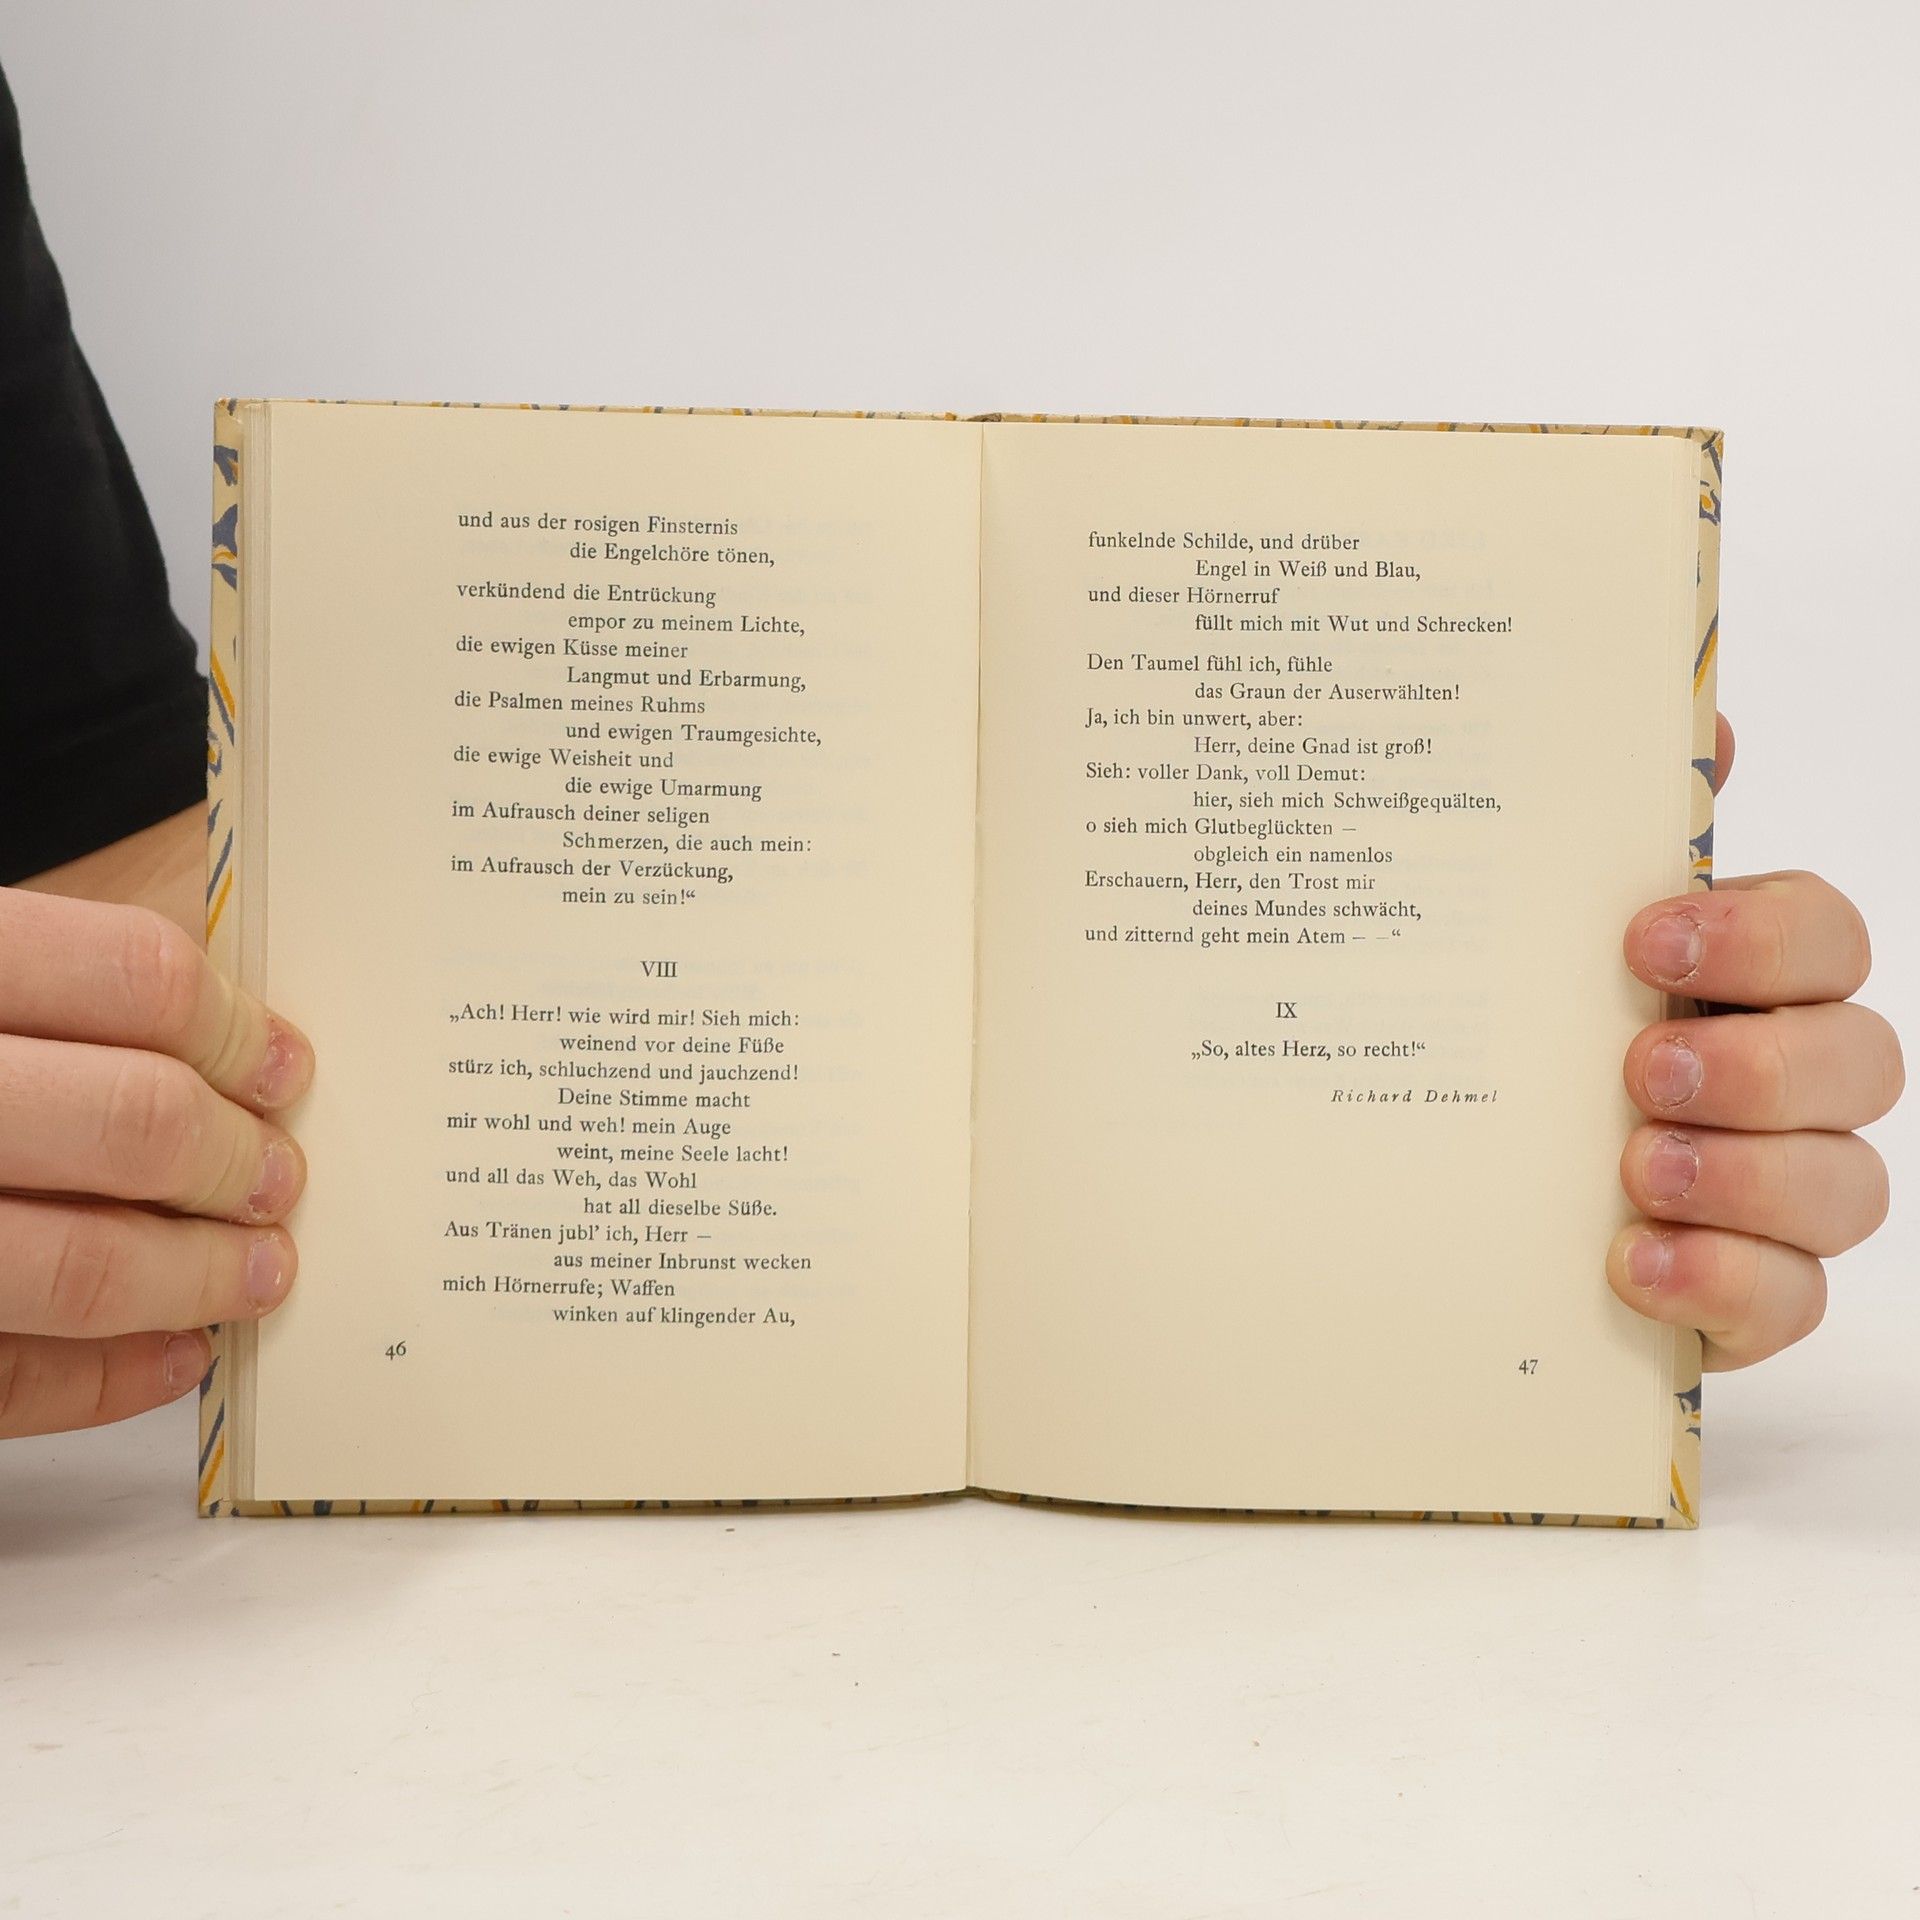 und aus der rosigen Finsternis
die Engelchöre tönen,
verkündend die Entrückung
empor zu meinem Lichte,
die ewigen Küsse meiner
Langmut und Erbarmung,
die Psalmen meines Ruhms
und ewigen Traumgesichte,
die ewige Weisheit und
die ewige Umarmung
im Aufrausch deiner seligen
Schmerzen, die auch mein:
im Aufrausch der Verzückung,
mein zu sein!“
VIII
„Ach! Herr! wie wird mir! Sieh mich:
weinend vor deine Füße
stürz ich, schluchzend und jauchzend!
Deine Stimme macht
mir wohl und weh! mein Auge
weint, meine Seele lacht!
und all das Weh, das Wohl
hat all dieselbe Süße.
Aus Tränen jubl’ ich, Herr —
aus meiner Inbrunst wecken
mich Hörnerrufe; Waffen
winken auf klingender Au,
46
funkelnde Schilde, und drüber
Engel in Weiß und Blau,
und dieser Hörnerruf
füllt mich mit Wut und Schrecken!
Den Taumel fühl ich, fühle
das Graun der Auserwählten!
Ja, ich bin unwert, aber:
Herr, deine Gnad ist groß!
Sieh: voller Dank, voll Demut:
hier, sieh mich Schweißgequälten,
o sieh mich Glutbeglückten —
obgleich ein namenlos
Erschauern, Herr, den Trost mir
deines Mundes schwächt,
und zitternd geht mein Atem — —“
IX
„So, altes Herz, so recht!“
Richard Dehmel
47